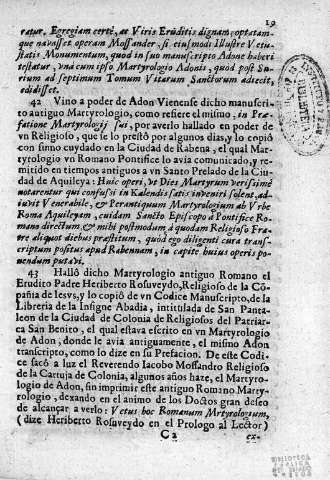 19
ratur, Egregiam certè, ac Viris Eruditis dignam, optatam-
que navasset operam Mossander, si eiusmodi Illustre Vetu-
statis Monumentum, quod in suo manuscripto Adone haberi
testatur, vna cum ipso Martyrologio Adonis, quod post Su-
rium ad septimum Tomum Vitarum Sanctorum adiecit,
edidisset.
42 Vino a poder de Adon Vienense dicho manuscri-
to antiguo Martyrologio, como refiere el mismo, in Præ-
fatione Martyrologij sui, por averlo hallado en poder de
vn Religioso, que le lo prestò por algunos dias, y lo copiò
con sumo cuydado en la Ciudad de Rabena, el qual Mar-
tyrologio vn Romano Pontifice lo avia comunicado, y re-
mitido en tiempos antiguos a vn Santo Prelado de la Ciu-
dad de Aquileya: Huic operi, vt Dies Martyrum verissimè
notarentur qui confussi in Kalendis satis inveniri solent, ad-
iuvit Venerabile, & Perantiquum Martyrologium ab Vrbe
Roma Aquileyam, cuidam Sancto Episcopo à Pontifice Ro-
mano directum & mihi postmodum à quodam Religioso Fra-
tre aliquot diebus præstitum, quod ego diligenti cura trans-
criptum positus apud Rabennam, in capite huius operis po-
nendum putavi.
43 Hallò dicho Martyrologio antiguo Romano el
Erudito Padre Heriberto Rosuveydo, Religioso de la Cõ-
pañia de Iesvs, y lo copiò de vn Codice Manuscripto, de la
Libreria de la Insigne Abadia, intitulada de San Panta-
leon de la Ciudad de Colonia de Religiosos del Patriar-
ca San Benito, el qual estava escrito en vn Martyrologio
de Adon, donde le avia antiguamente, el mismo Adon
transcripto, como lo dize en su Prefacion. De este Codi-
ce sacò a luz el Reverendo Iacobo Mossandro Religioso
de la Cartuja de Colonia, algunos años haze, el Martyro-
logio de Adon, sin imprimir este antiguo Romano Marty-
rologio, dexando en el animo de los Doctos gran deseo
de alcançar a verlo: Vetus hoc Romanum Mrtyrologium,
(dize Heriberto Rosuveydo en el Prologo al Lector)
C2 ex-
BIBLIOTECA